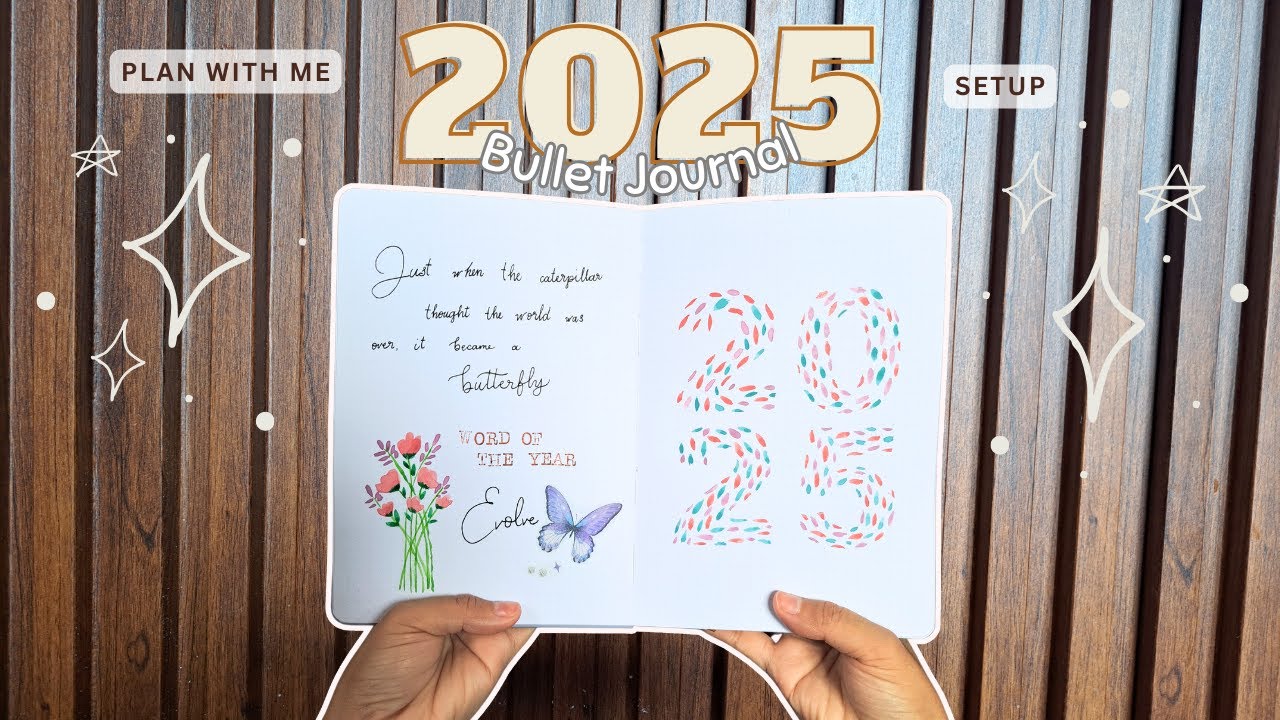 PLAN WITH ME
2025
SETUP
Bullet Journal
Just when the caterpillar
thought the world was
over, it became a
butterfly
WORD OF
THE YEAR
Evolve
20
25